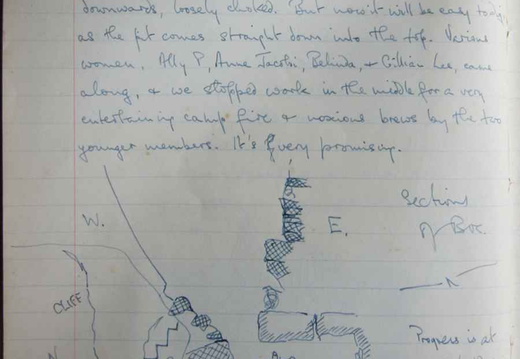 downwards, loosely choked. But now it will be easy to dig
as the pit comes straight down into the top. Various
women, Ally P, Anne Jacobi, Belinda, & Gillian Lee, came
along, & we stopped work in the middle for a very
entertaining camp fire & noxious brews by the two
younger members. It's very promising.
W.
E.
Sections
of
CLIFF
Progress is at